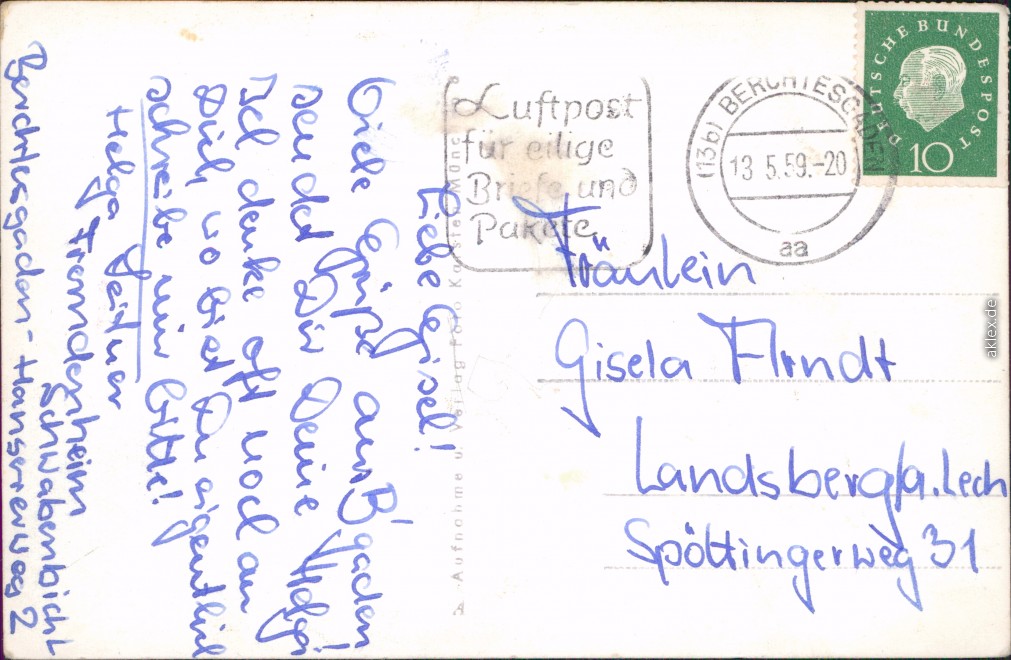 Liebe Gisel!
Viele Grüße aus B'gaden
sendet Dir Deine Helga!
Ich denke oft noch an
Dich, wo bist Du eigentlich
schreibe mir bitte!
Helga
Fremdenheim
Schwabenbichl
Berchtesgaden-Hanserweg 2
Aufnahme u. Verlag Foto
Luftpost
für eilige
Briefe und
Pakete
(13b) BERCHTESGADEN
13.5.59.-20
aa
DEUTSCHE BUNDESPOST
10
Fräulein
Gisela Arndt
Landsberg/a. Lech
Spöttingerweg 31
aklex.de